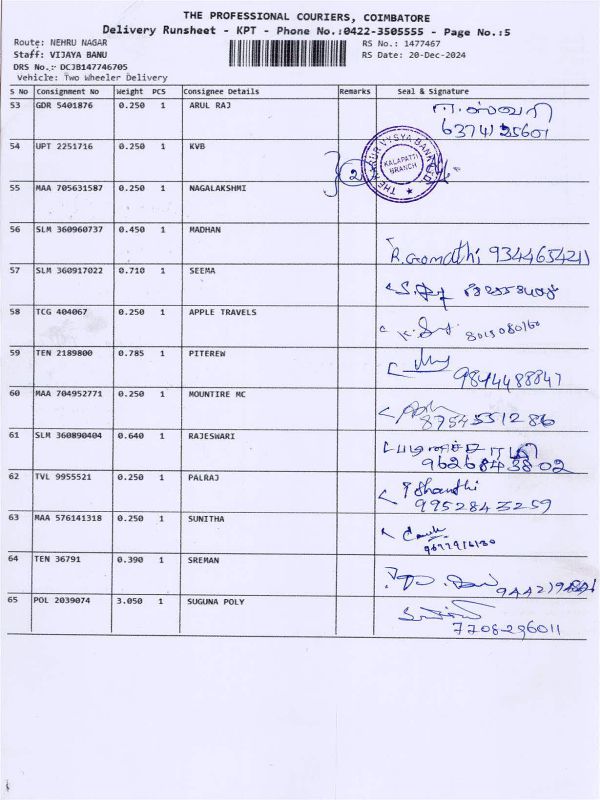 THE PROFESSIONAL COURIERS, COIMBATORE
Delivery Runsheet - KPT - Phone No.:0422-3505555 - Page No.:5
Route: NEHRU NAGAR RS No.: 1477467
Staff: VIJAYA BANU RS Date: 20-Dec-2024
DRS No.:- DCJB147746705
Vehicle: Two Wheeler Delivery
S No Consignment No Weight PCS Consignee Details Remarks Seal & Signature
53 GDR 5401876 0.250 1 ARUL RAJ ஈஸ்வரி
6374125601
54 UPT 2251716 0.250 1 KVB
2 THE KARUR VYSYA BANK LTD KALAPATTI BRANCH
55 MAA 705631587 0.250 1 NAGALAKSHMI
56 SLM 360960737 0.450 1 MADHAN
R.Gomathi 9344654211
57 SLM 360917022 0.710 1 SEEMA
58 TCG 404067 0.250 1 APPLE TRAVELS
59 TEN 2189800 0.785 1 PITEREW
9844488847
60 MAA 704952771 0.250 1 MOUNTIRE MC
8754551286
61 SLM 360890404 0.640 1 RAJESWARI
9626843802
62 TVL 9955521 0.250 1 PALRAJ
Shanthi
9952843259
63 MAA 576141318 0.250 1 SUNITHA
64 TEN 36791 0.390 1 SREMAN
65 POL 2039074 3.050 1 SUGUNA POLY
7708296011